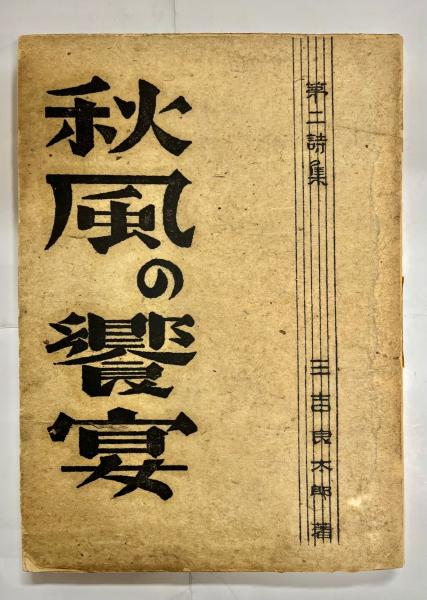 第二詩集
三吉良太郎著
秋風の饗宴